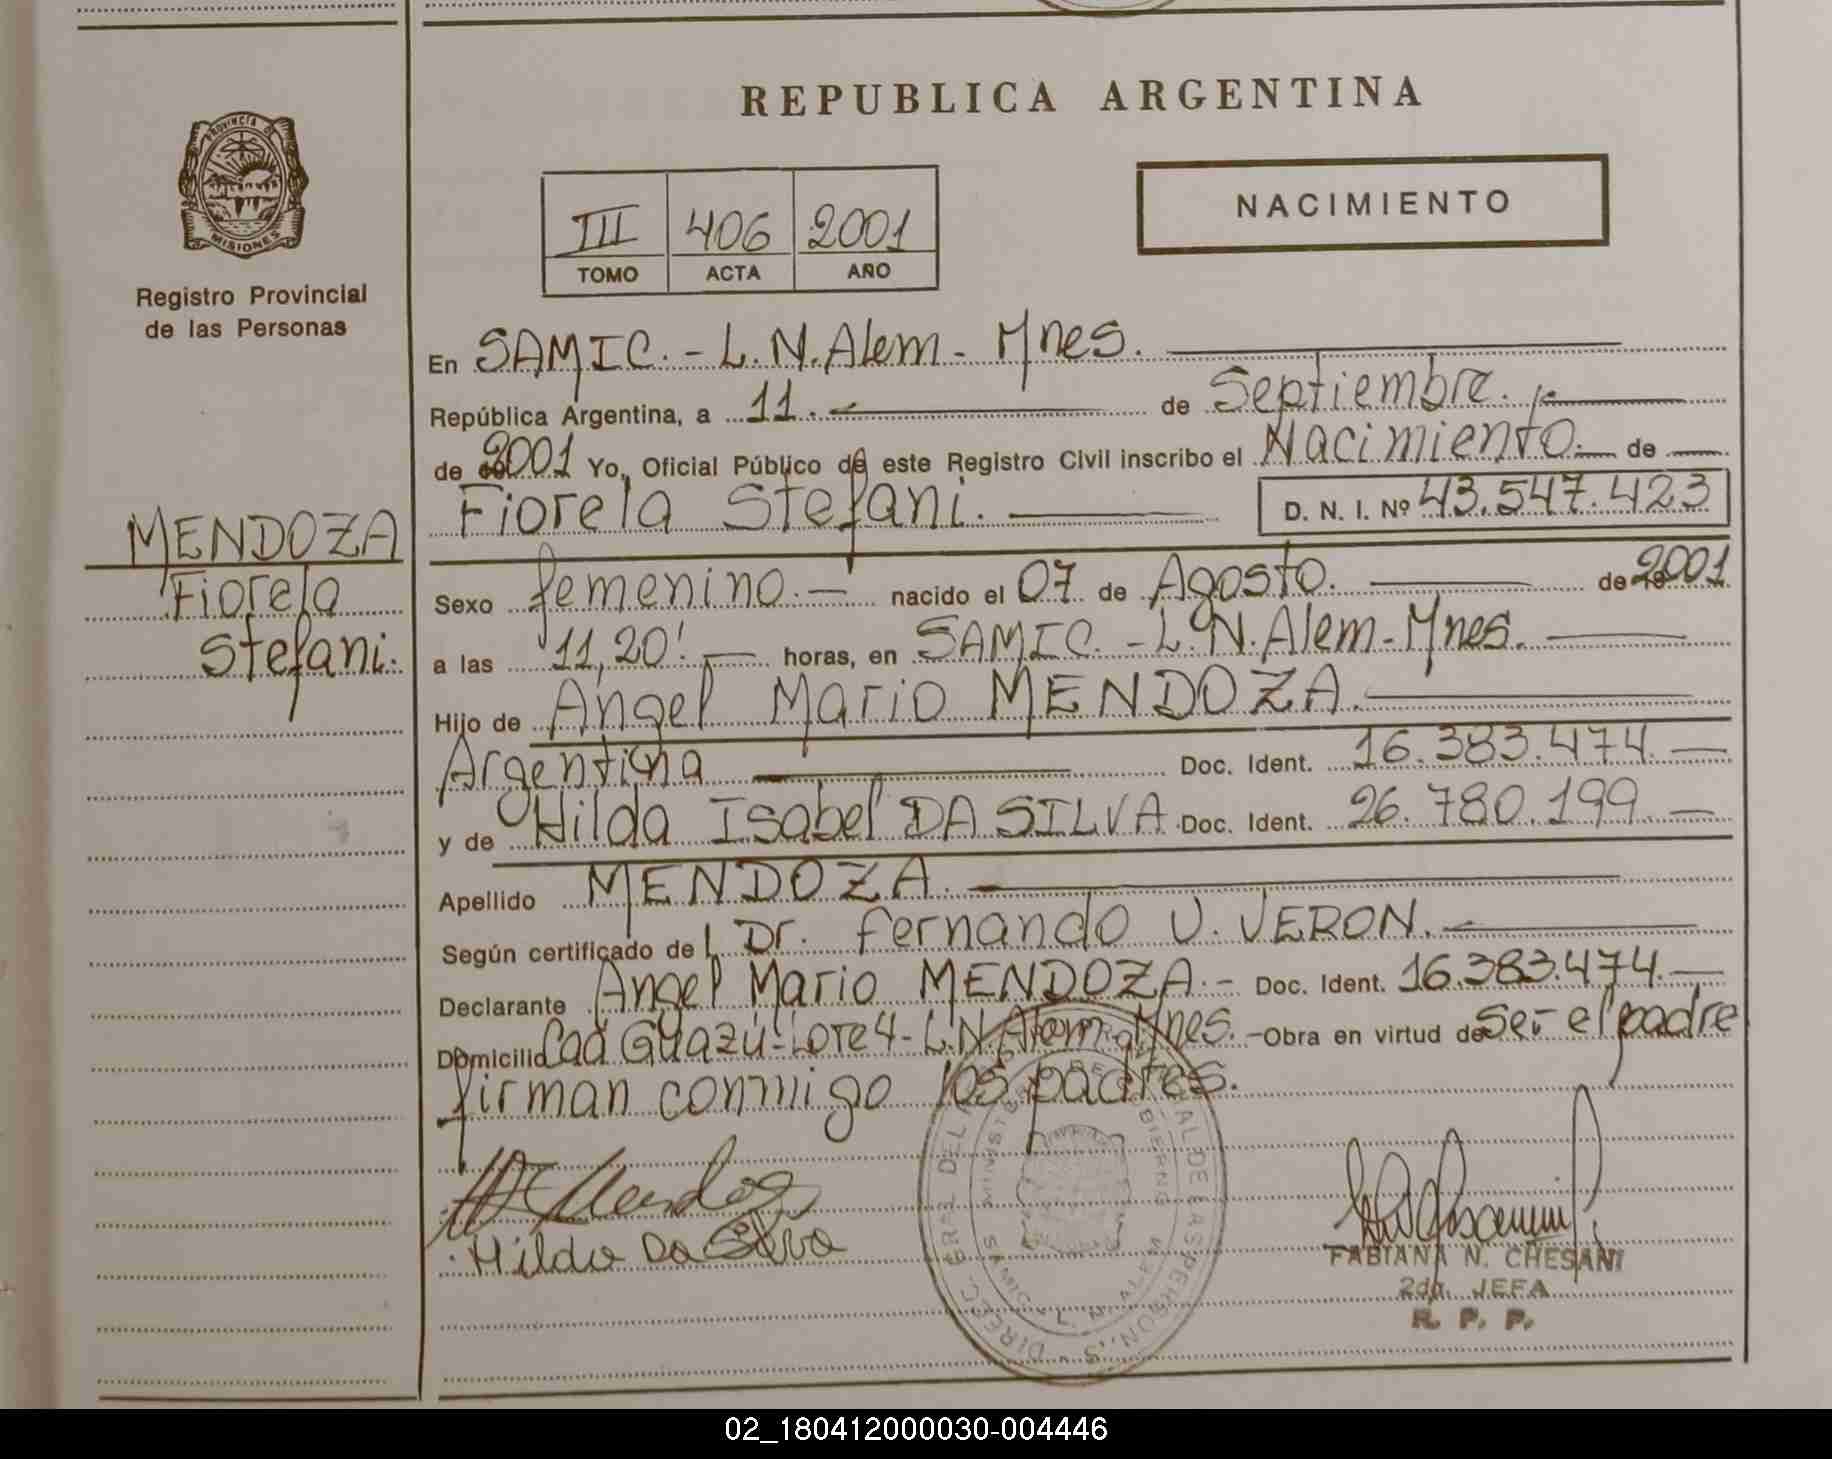 REPUBLICA ARGENTINA
PROVINCIA DE
MISIONES
Registro Provincial
de las Personas
III 406 2001
TOMO ACTA AÑO
NACIMIENTO
En SAMIC.-L.N.Alem-Mnes.
República Argentina, a 11. de Septiembre.
de 2001 Yo, Oficial Público de este Registro Civil inscribo el Nacimiento. de
Fiorela Stefani. D. N. I. Nº 43.547.423
MENDOZA
Fiorela
Stefani.
Sexo femenino.- nacido el 07 de Agosto. de 2001
a las 11,20'. horas, en SAMIC.-L.N.Alem-Mnes.
Hijo de Angel Mario MENDOZA.
Argentina Doc. Ident. 16.383.474.
y de Hilda Isabel DA SILVA Doc. Ident. 26.780.199.
Apellido MENDOZA.
Según certificado de Dr. Fernando V. VERON.
Declarante Angel Mario MENDOZA.- Doc. Ident. 16.383.474.
Domicilio Caá Guazú-Lote 4-L.N.Alem-Mnes.- Obra en virtud de Ser el padre
firman conmigo los padres.
Mendoza
Hilda Da Silva
FABIANA N. CHESANI
2da. JEFA
R. P. P.
02_180412000030-004446